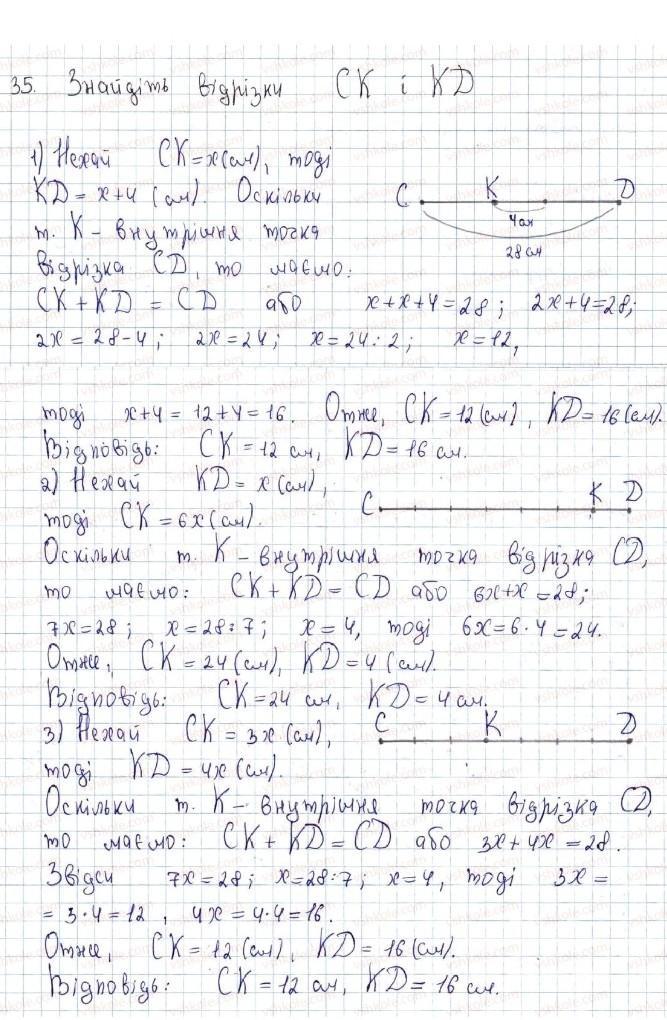 35. Знайдіть відрізки CK і KD
1) Нехай CK=x(см), тоді
KD=x+4 (см). Оскільки
C K D
4 см
т. K - внутрішня точка
28 см
відрізка CD, то маємо:
CK+KD=CD або x+x+4=28; 2x+4=28;
2x=28-4; 2x=24; x=24:2; x=12,
тоді x+4=12+4=16. Отже, CK=12(см), KD=16(см).
Відповідь: CK=12 см, KD=16 см.
2) Нехай KD=x(см),
C K D
тоді CK=6x(см).
Оскільки т. K - внутрішня точка відрізка CD,
то маємо: CK+KD=CD або 6x+x=28;
7x=28; x=28:7; x=4, тоді 6x=6·4=24.
Отже, CK=24(см), KD=4(см).
Відповідь: CK=24 см, KD=4 см.
3) Нехай CK=3x(см),
C K D
тоді KD=4x(см).
Оскільки т. K - внутрішня точка відрізка CD,
то маємо: CK+KD=CD або 3x+4x=28.
Звідси 7x=28; x=28:7; x=4, тоді 3x=
=3·4=12, 4x=4·4=16.
Отже, CK=12(см), KD=16(см).
Відповідь: CK=12 см, KD=16 см.